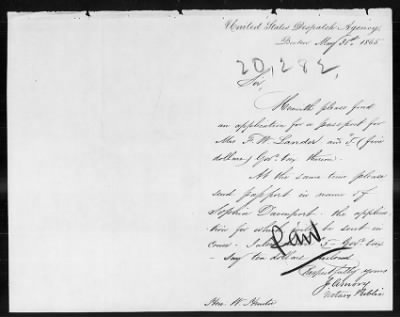 United States Despatch Agency,
Boston May 31st, 1865
20,282,
Sir,
Herewith please find
an application for a passport for
Mrs F. W. Lander and $5 (five
dollars) Govt tax thereon.
At the same time please
send passport in name of
Sophia Davenport - the applica
tion for which will be sent in
Govt tax
- Say ten dollars
Respectfully yours
Notary Public
Hon. W. Hunter